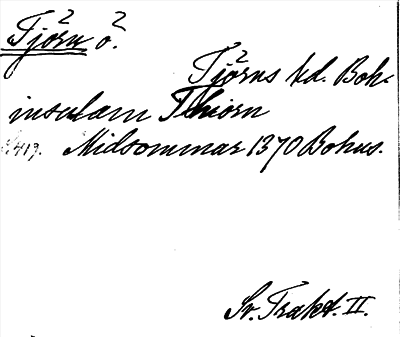 Tjörn ö.
Tjörns hd. Boh.
insulam Thiorn
S. 419. Midsommar 1370 Bohus.
Sv. Trakt. II.